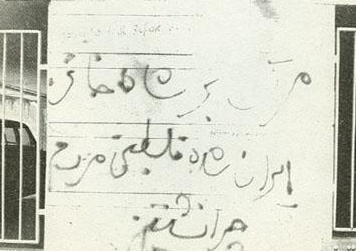 مرگ بر شاه خائن
ایران شده فلسطین مردم
چرا نشستین